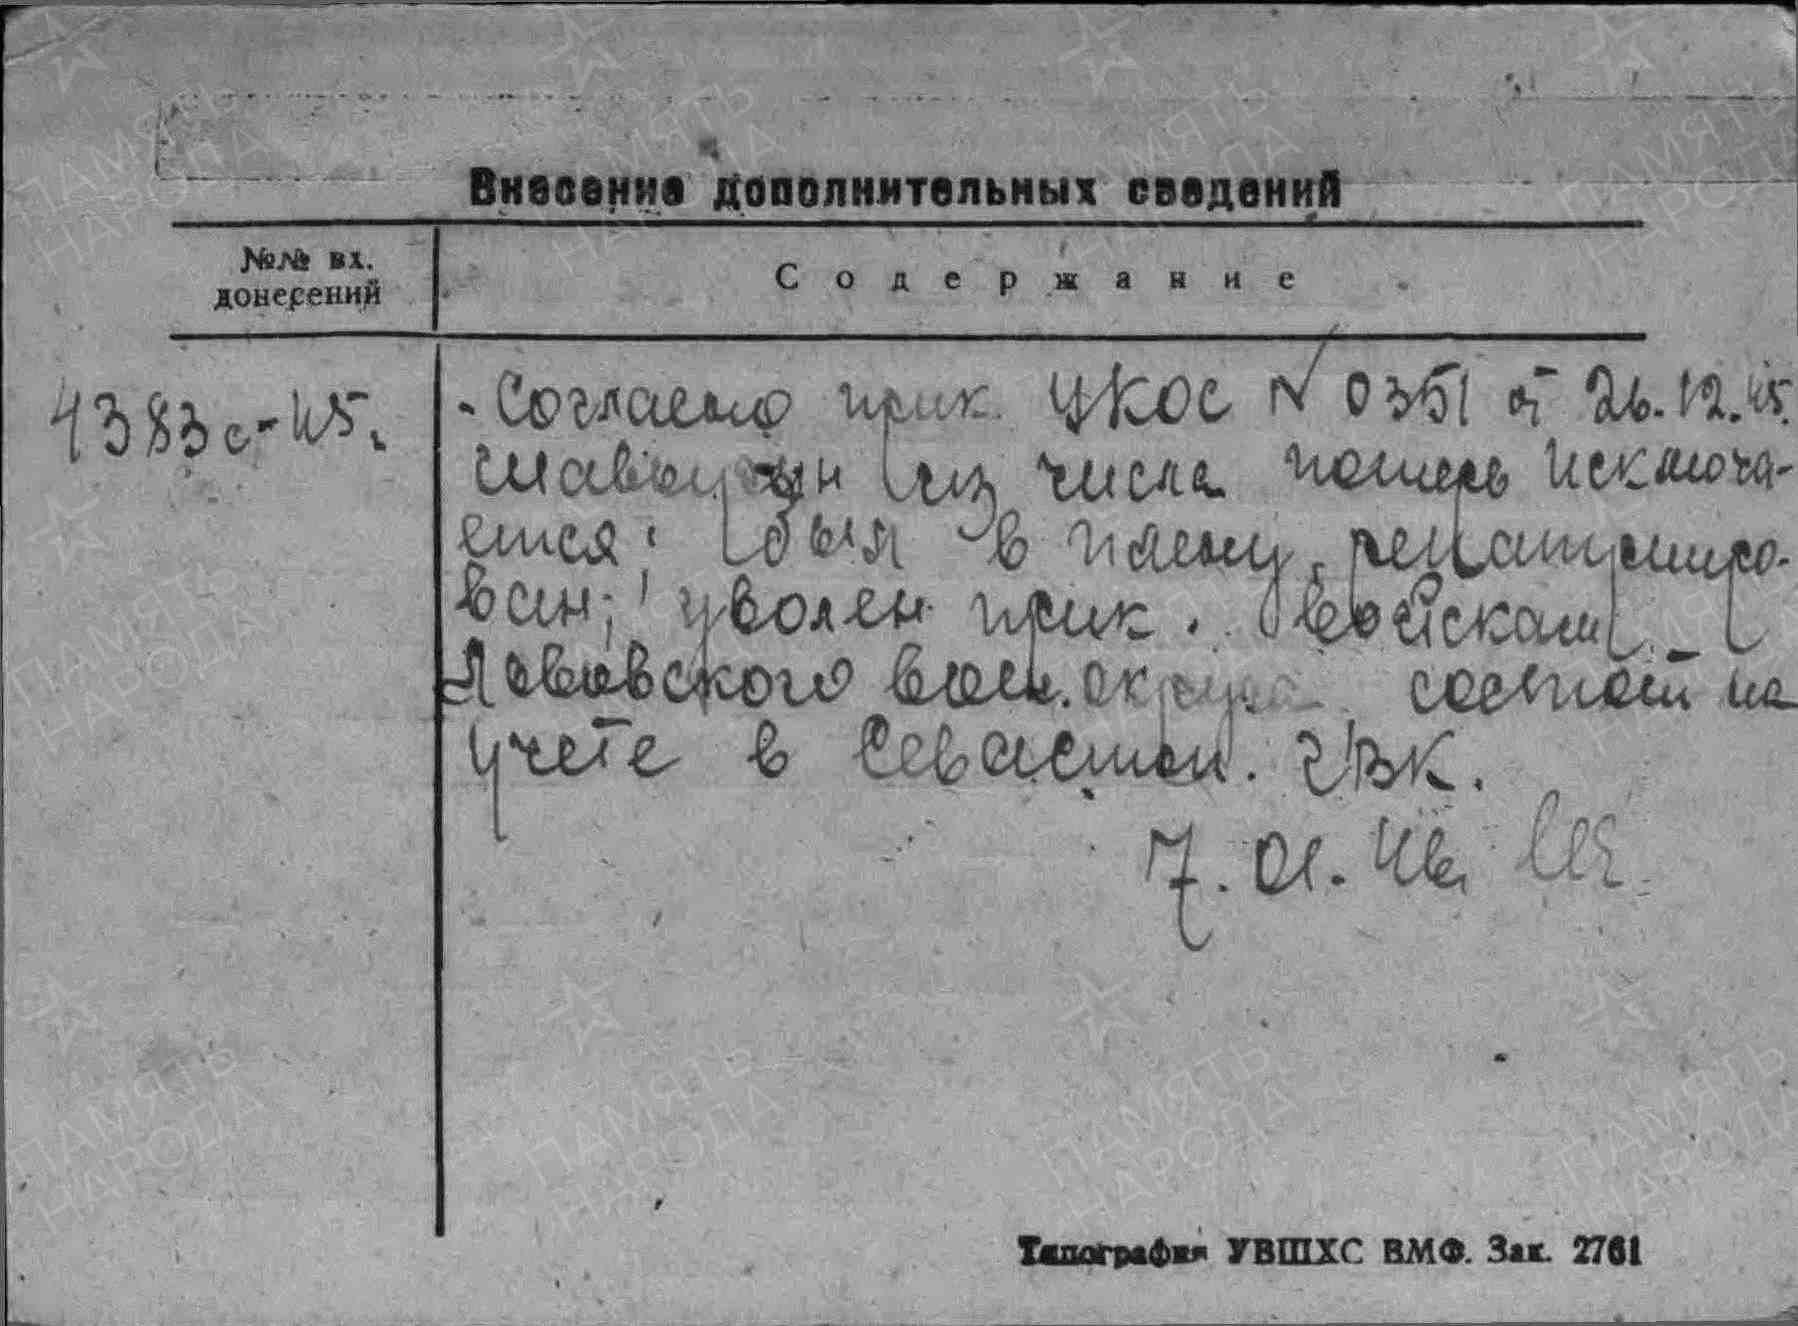 Внесение дополнительных сведений
№№ вх. донесений
Содержание
4383с-45.
- Согласно прик. УКОС № 0351 от 26.12.45.
из числа потерь исключа-
ется; был в плену, репатрииро-
ван; уволен прик. войскам
Львовского воен. округа состоит на
учете в Севастоп. ГВК.
7.01.46
Типография УВШХС ВМФ. Зак. 2761
ПАМЯТЬ НАРОДА